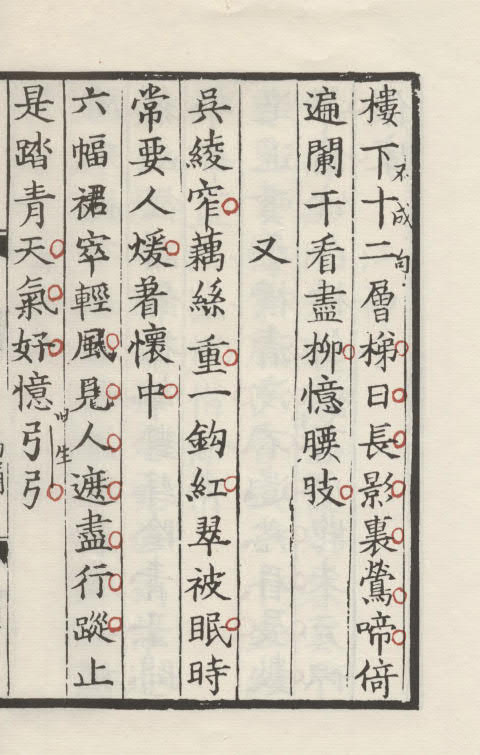 樓下十二層梯日長影裏鶯啼倚
不成句
遍闌干看盡柳憶腰肢
又
吳綾窄藕絲重一鈎紅翠被眠時
常要人煖著懷中
六幅裙窣輕風見人遮盡行蹤止
是踏青天氣好憶弓弓